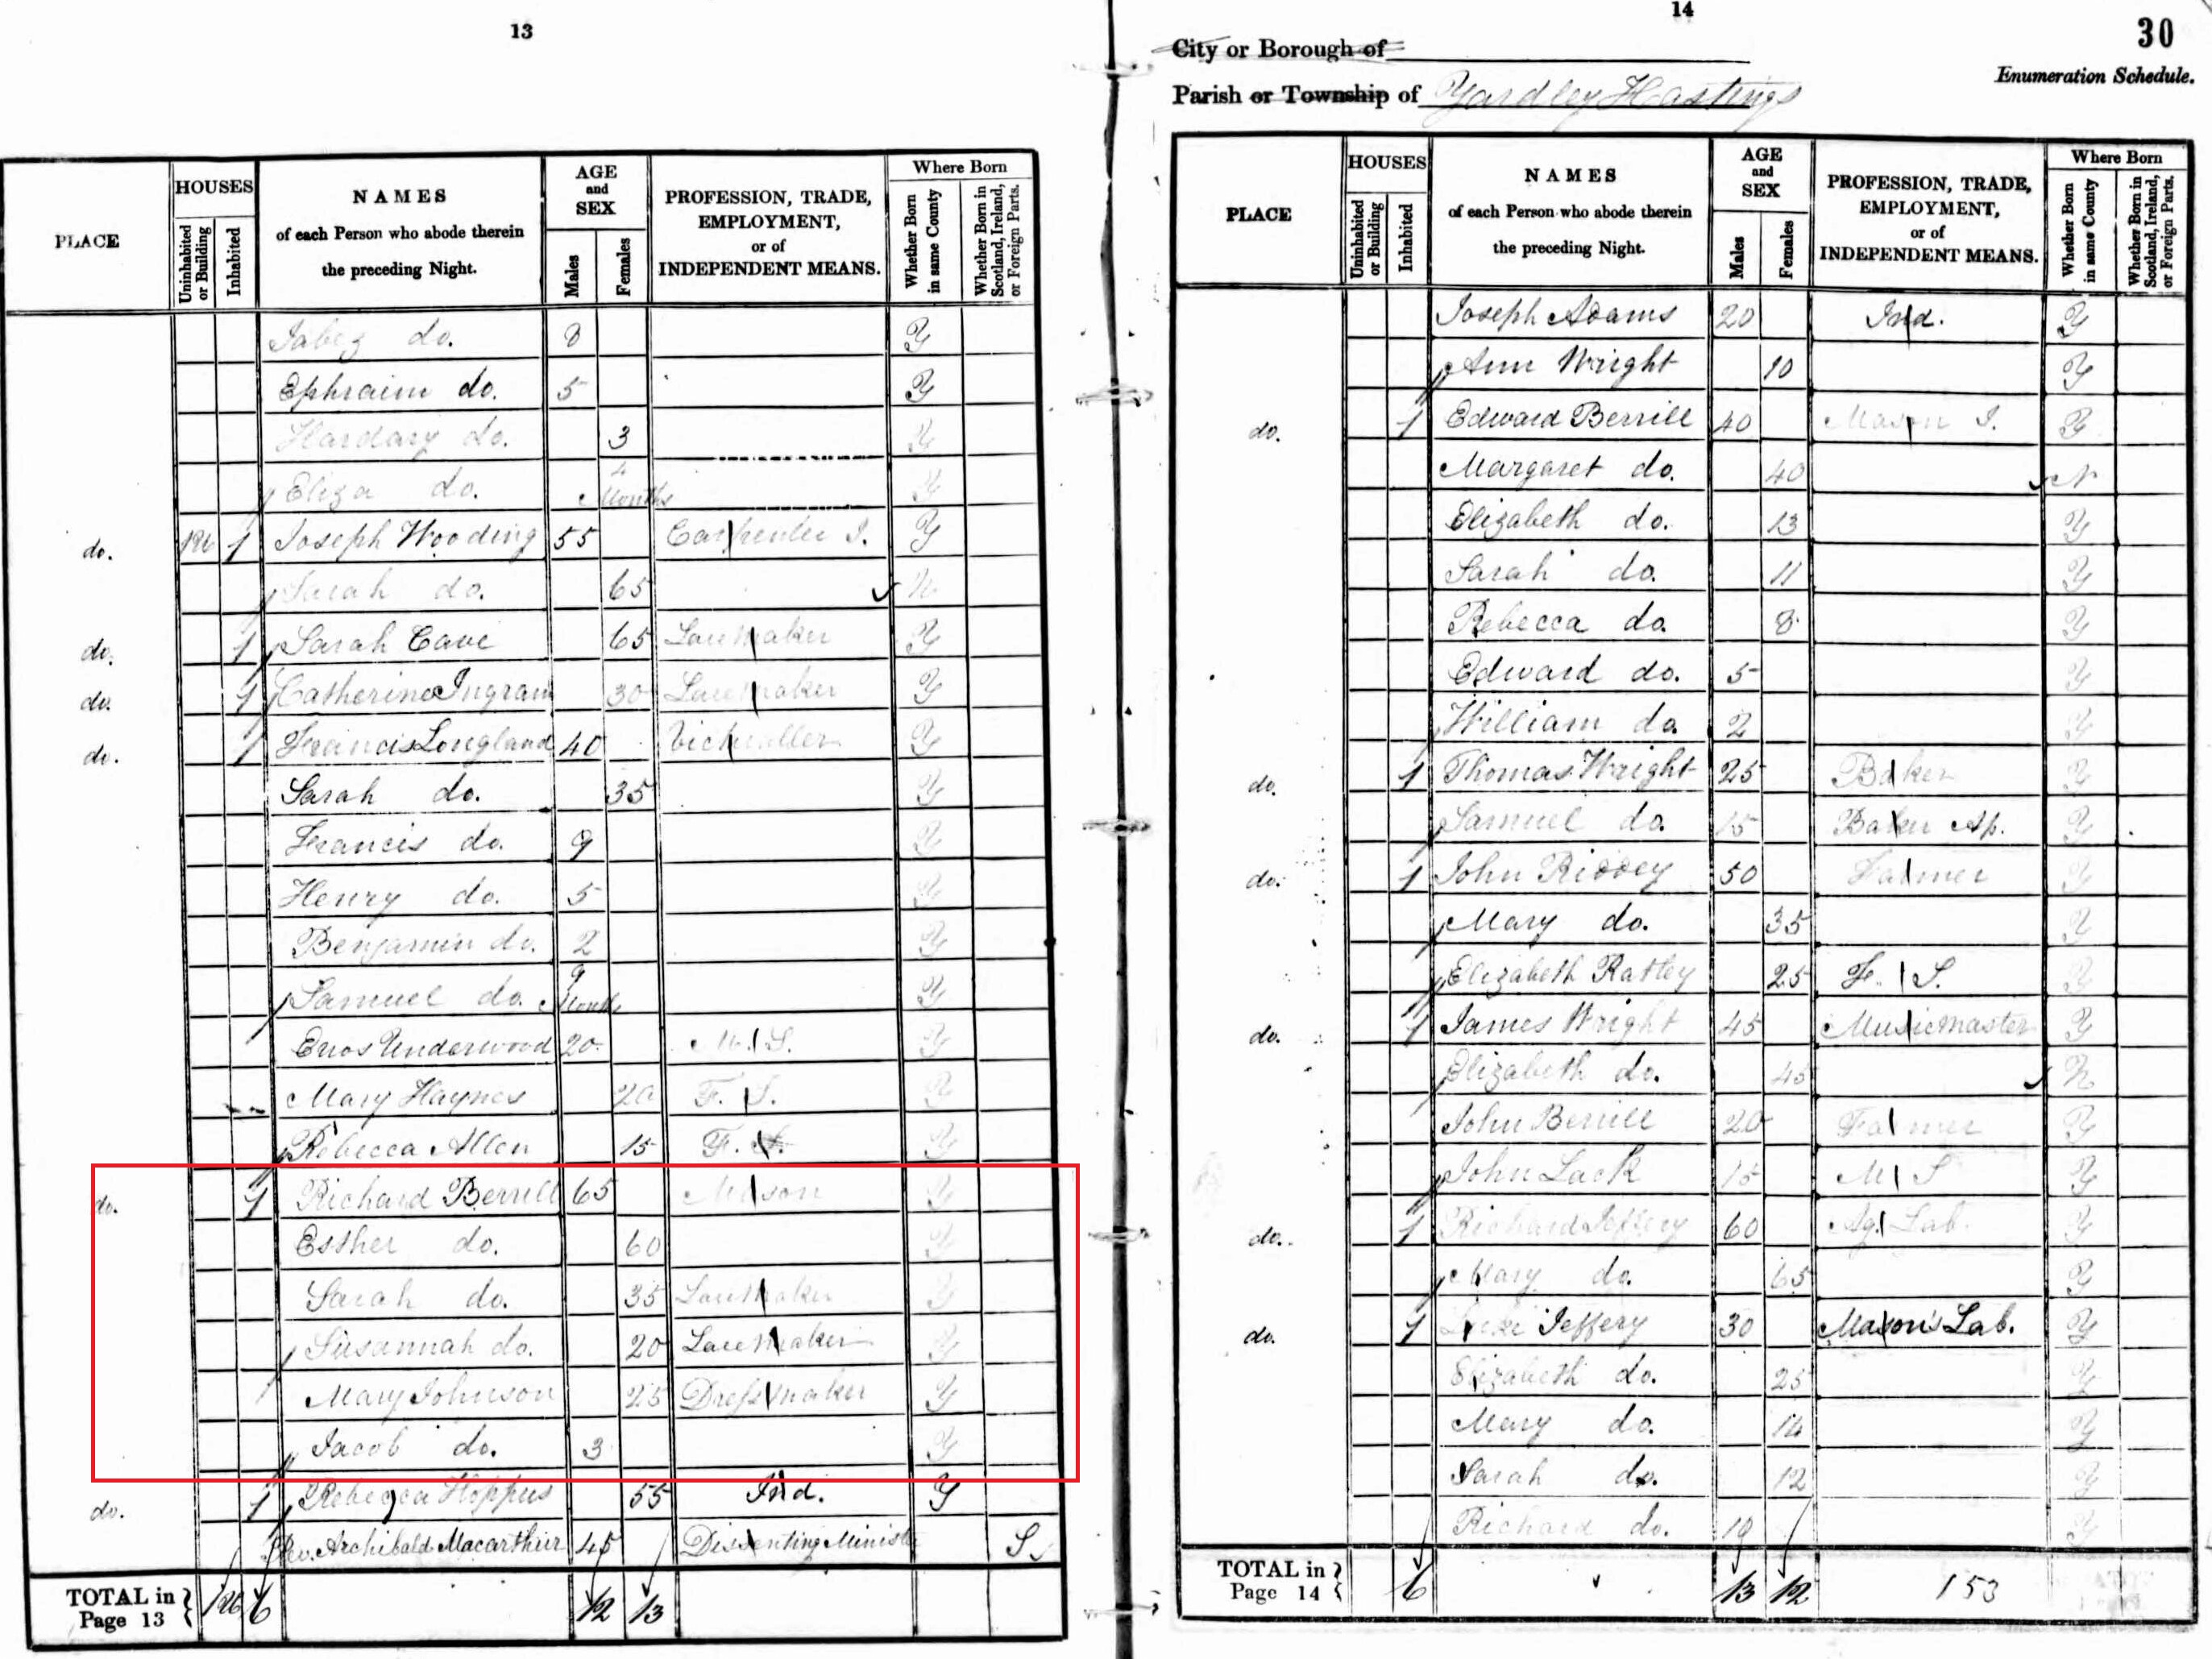 13
PLACE
HOUSES
Uninhabited or Building
Inhabited
NAMES
of each Person who abode therein
the preceding Night.
AGE
and
SEX
Males
Females
PROFESSION, TRADE,
EMPLOYMENT,
or of
INDEPENDENT MEANS.
Where Born
Whether Born in same County
Whether Born in Scotland, Ireland, or Foreign Parts.
Jabez do. 8 Y
Ephraim do. 5 Y
do. 3 Y
Eliza do. 4 Months Y
do. 1 Joseph Wooding 55 Carpenter J. Y
Sarah do. 65 N
do. 1 Sarah Cave 65 Lacemaker Y
do. 1 Catherine Ingram 30 Lacemaker Y
do. 1 Francis Longland 40 Victualler Y
Sarah do. 35 Y
Francis do. 9 Y
Henry do. 5 Y
Benjamin do. 2 Y
Samuel do. 9 Months Y
Enos Underwood 20 M. S. Y
Mary Haynes 20 F. S. Y
Rebecca Allen 15 F. S. Y
do. 1 Richard Berrill 65 Mason Y
Essher do. 60 Y
Sarah do. 35 Lacemaker Y
Susannah do. 20 Lacemaker Y
Mary Johnson 25 Dressmaker Y
Jacob do. 3 Y
do. 1 Rebecca Hoppus 55 Ind. Y
Rev. Archibald Macarthur 45 Dissenting Ministe S
TOTAL in Page 13 6 12 13
14
30
City or Borough of
Enumeration Schedule.
Parish or Township of Yardley Hastings
PLACE
HOUSES
Uninhabited or Building
Inhabited
NAMES
of each Person who abode therein
the preceding Night.
AGE
and
SEX
Males
Females
PROFESSION, TRADE,
EMPLOYMENT,
or of
INDEPENDENT MEANS.
Where Born
Whether Born in same County
Whether Born in Scotland, Ireland, or Foreign Parts.
Joseph Adams 20 Ind. Y
Ann Wright 10 Y
do. 1 Edward Berrill 40 Mason J. Y
Margaret do. 40 N
Elizabeth do. 13 Y
Sarah do. 11 Y
Rebecca do. 8 Y
Edward do. 5 Y
William do. 2 Y
do. 1 Thomas Wright 25 Baker Y
Samuel do. 15 Baker Ap. Y
do. 1 John Riddey 50 Farmer Y
Mary do. 35 Y
Elizabeth Ratley 25 F. S. Y
do. 1 James Wright 45 Musicmaster Y
Elizabeth do. 45 N
John Berrill 20 Farmer Y
John Lack 15 M S Y
do. 1 Richard Jeffery 60 Ag. Lab. Y
Mary do. 65 Y
do. 1 Jeffery 30 Mason's Lab. Y
Elizabeth do. 25 Y
Mary do. 14 Y
Sarah do. 12 Y
Richard do. 10 Y
TOTAL in Page 14 6 13 12 153